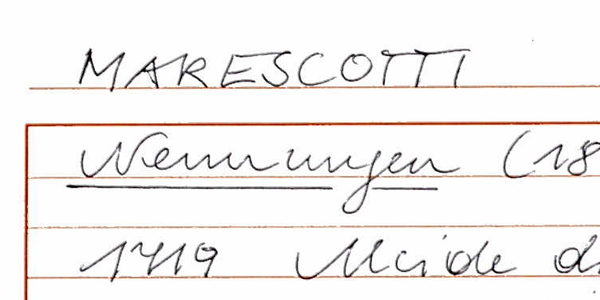 MARESCOTTI
Nennungen (18
1719 Alcide d